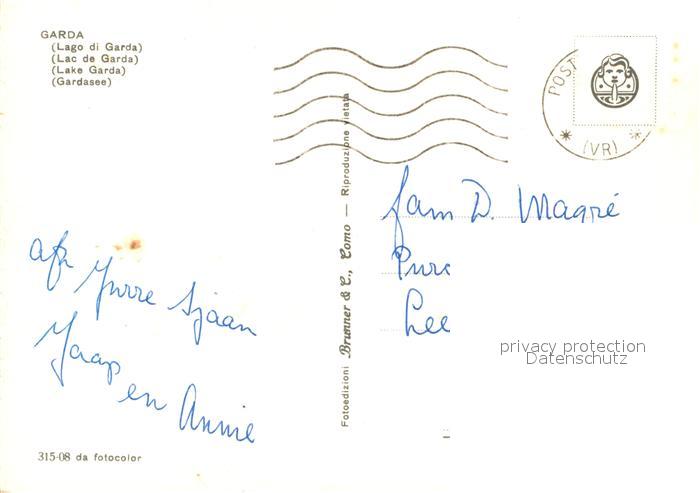 GARDA
(Lago di Garda)
(Lac de Garda)
(Lake Garda)
(Gardasee)
POST
(VR)
Fotoedizioni Brunner & C., Como — Riproduzione vietata
fam D. Magré
Lee
privacy protection
Datenschutz
afz
Sjaan
Jaap
en Annie
315-08 da fotocolor